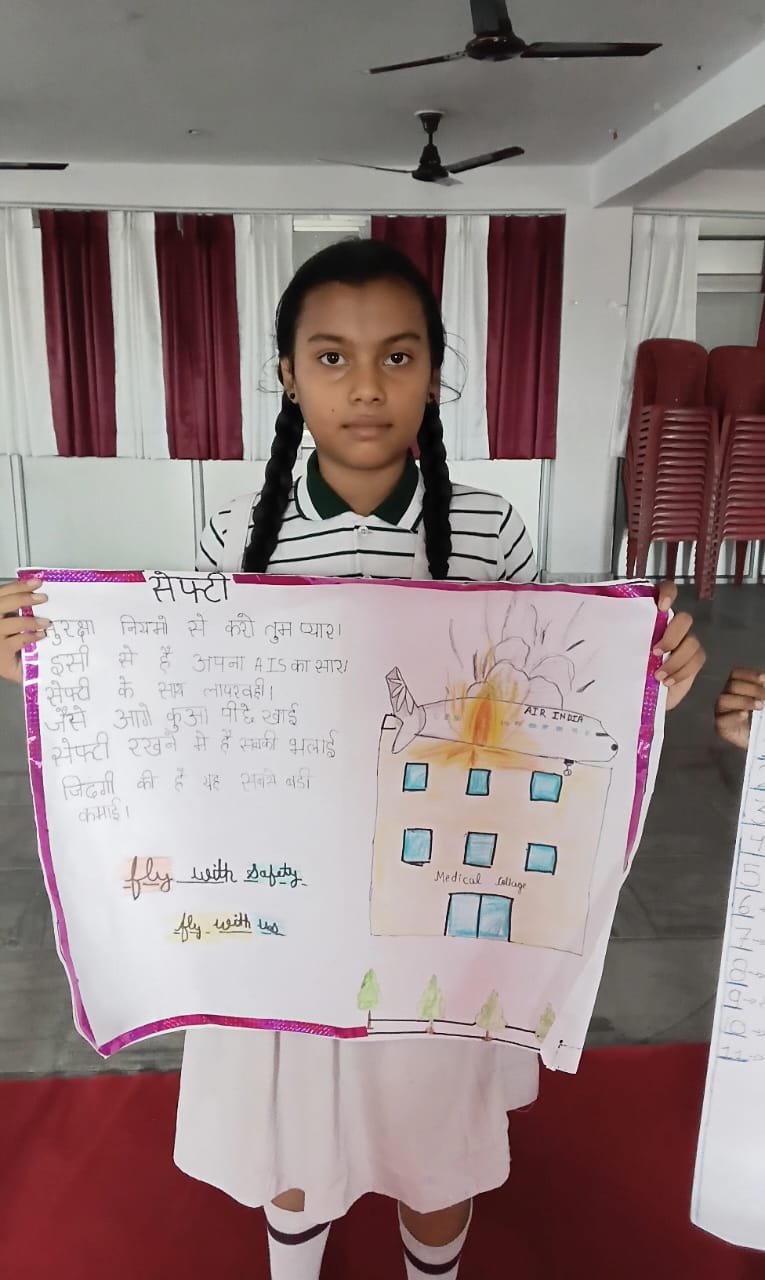 सेफ्टी
सुरक्षा नियमो से करो तुम प्यार।
इसी से है अपना AIS का सार।
सेफ्टी के साथ लापरवही।
जैसे आगे कुआ पीछे खाई
सेफ्टी रखने मे है सबकी भलाई
जिदगी की है यह सबसे बडी
कमाई।
fly with safety
fly with us
AIR INDIA
Medical Collage
4
5
6
7
8
9
10
11